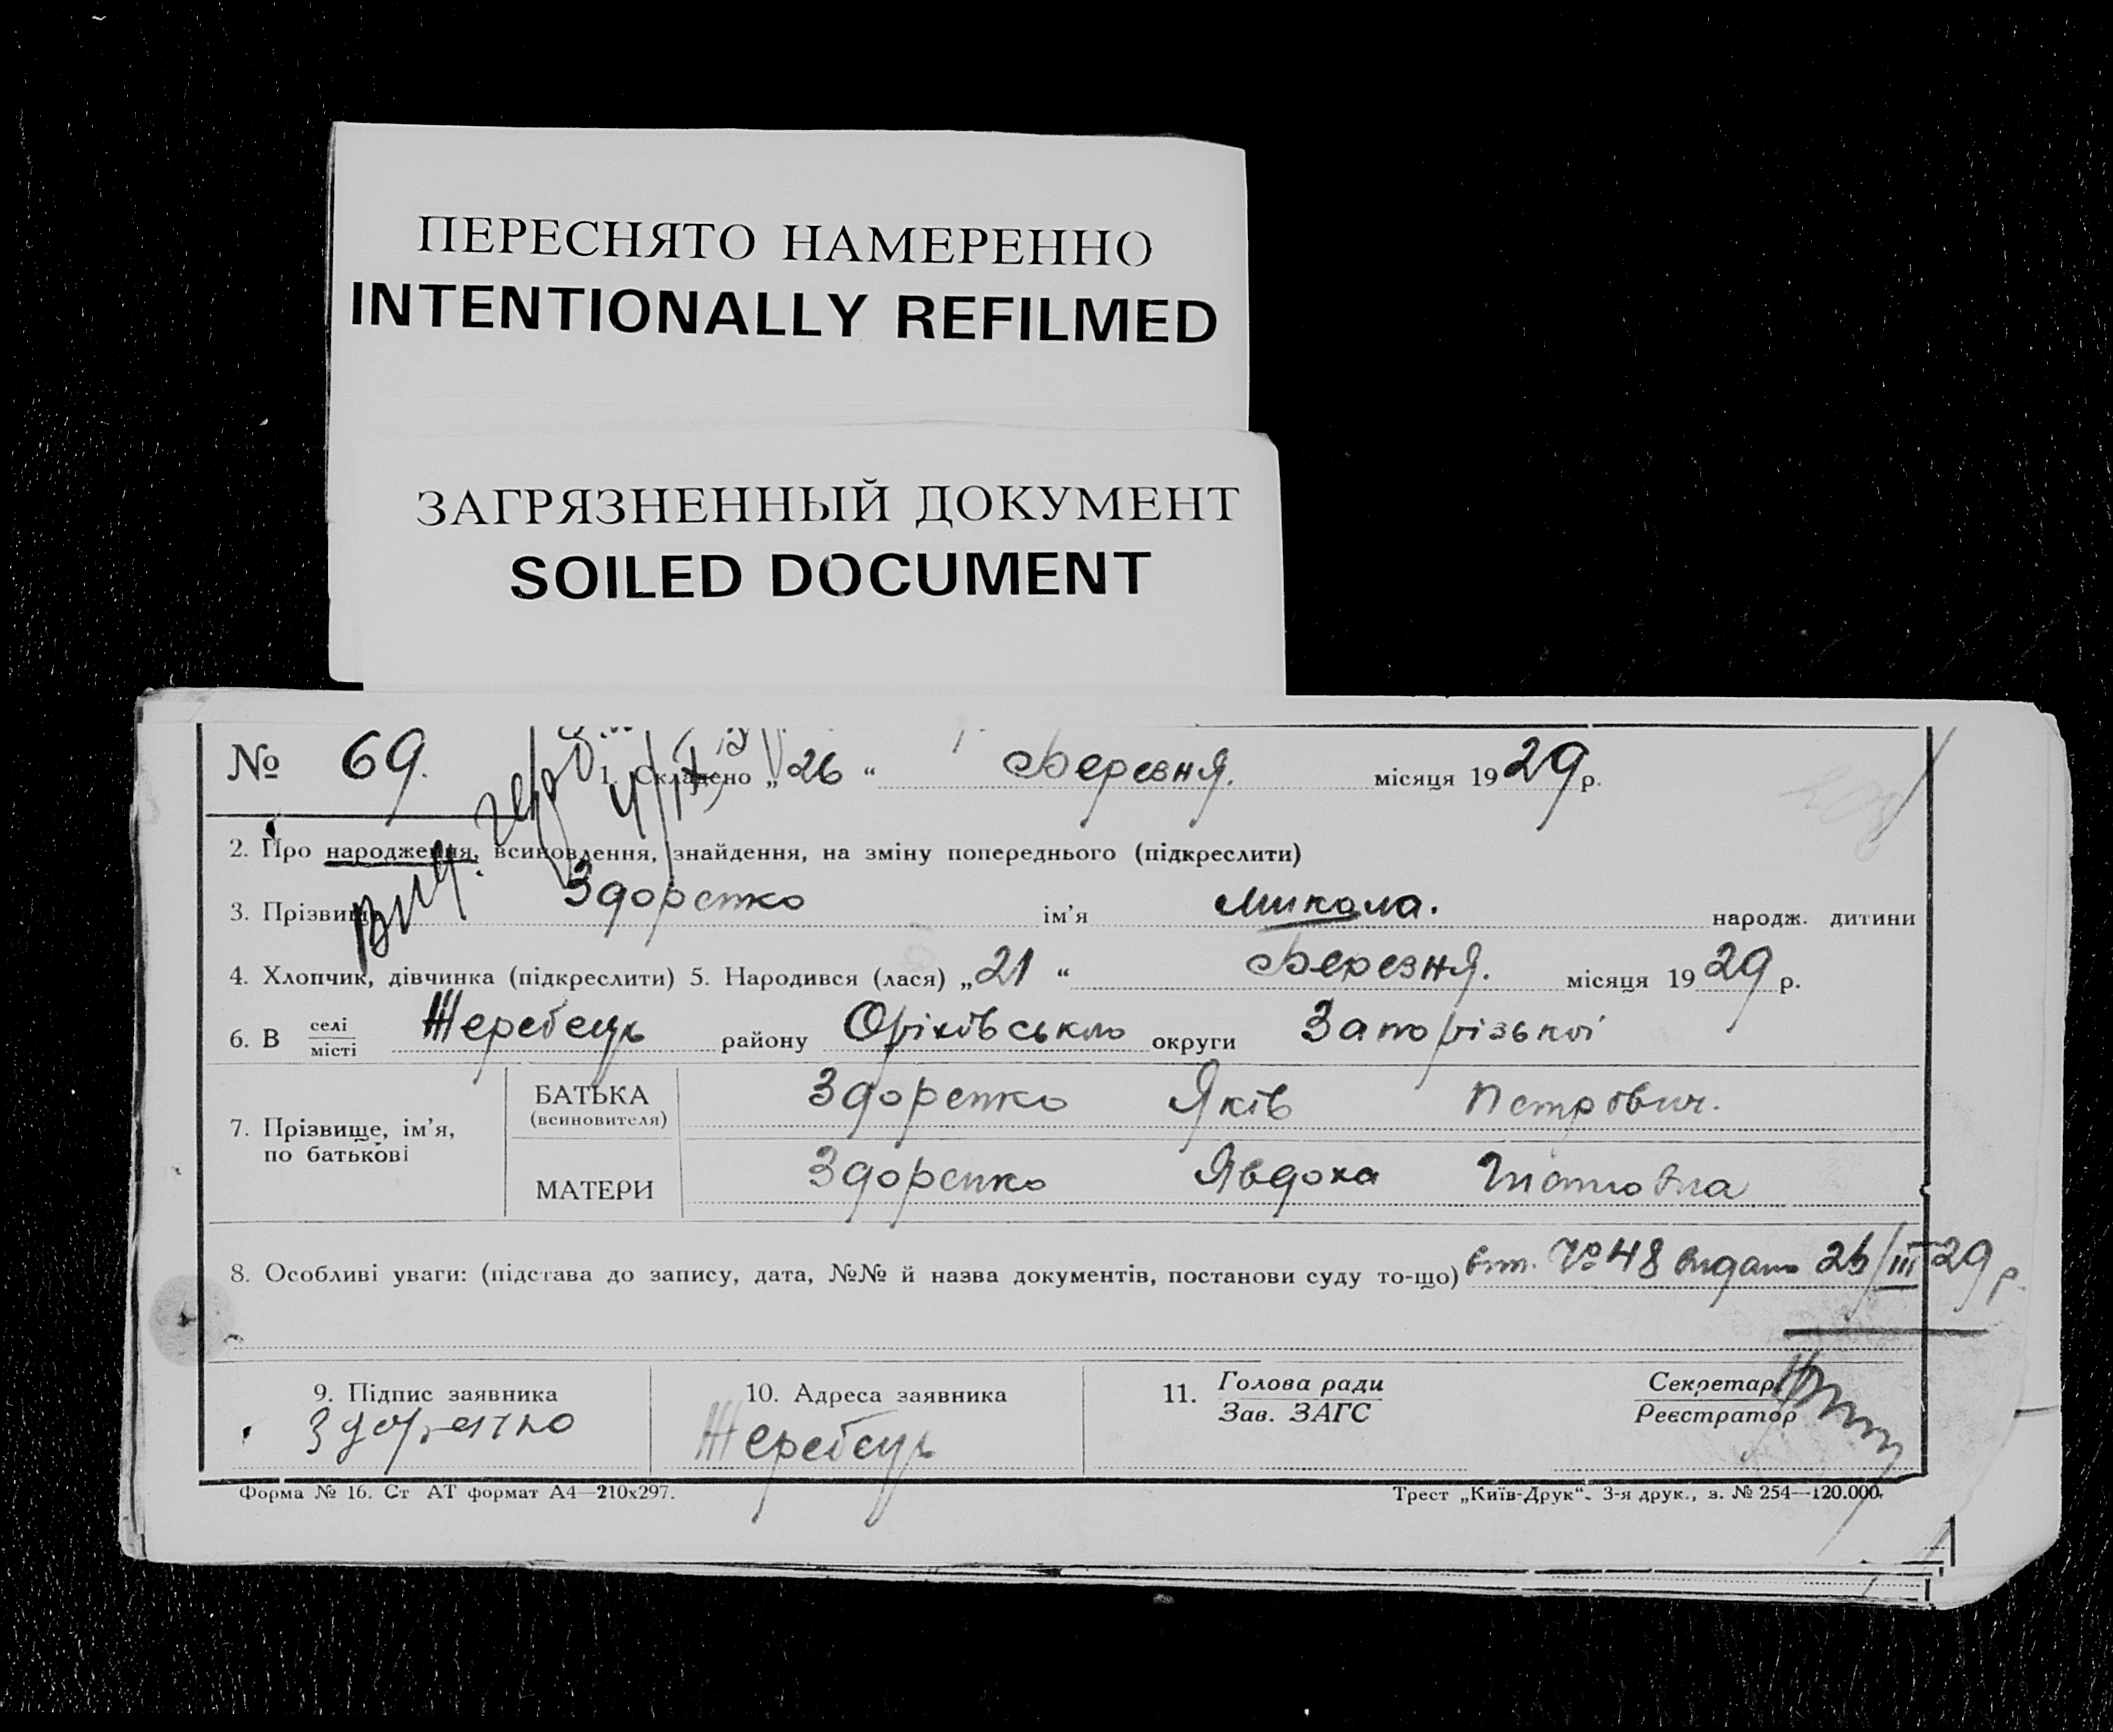 ПЕРЕСНЯТО НАМЕРЕННО
INTENTIONALLY REFILMED
ЗАГРЯЗНЕННЫЙ ДОКУМЕНТ
SOILED DOCUMENT
№ 69. 1. Складено „26“ Березня. місяця 1929 р.
2. Про народження, всиновлення, знайдення, на зміну попереднього (підкреслити)
3. Прізвище Здоренко ім’я Микола. народж. дитини
4. Хлопчик, дівчинка (підкреслити) 5. Народився (лася) „21“ Березня. місяця 1929 р.
6. В селі/місті Жеребець району Оріхівсько округи Запорізької
7. Прізвище, ім’я, по батькові
БАТЬКА (всиновителя) Здоренко Яків Петрович.
МАТЕРИ Здоренко Явдоха
8. Особливі уваги: (підстава до запису, дата, №№ й назва документів, постанови суду то-що) вит. № 48 видано 26/III 29 р.
9. Підпис заявника 10. Адреса заявника 11. Голова ради Секретар
Зав. ЗАГС Реєстратор
Здоренко Жеребець
Форма № 16. Ст АТ формат А4—210х297. Трест „Київ-Друк“. 3-я друк., з. № 254—120.000.